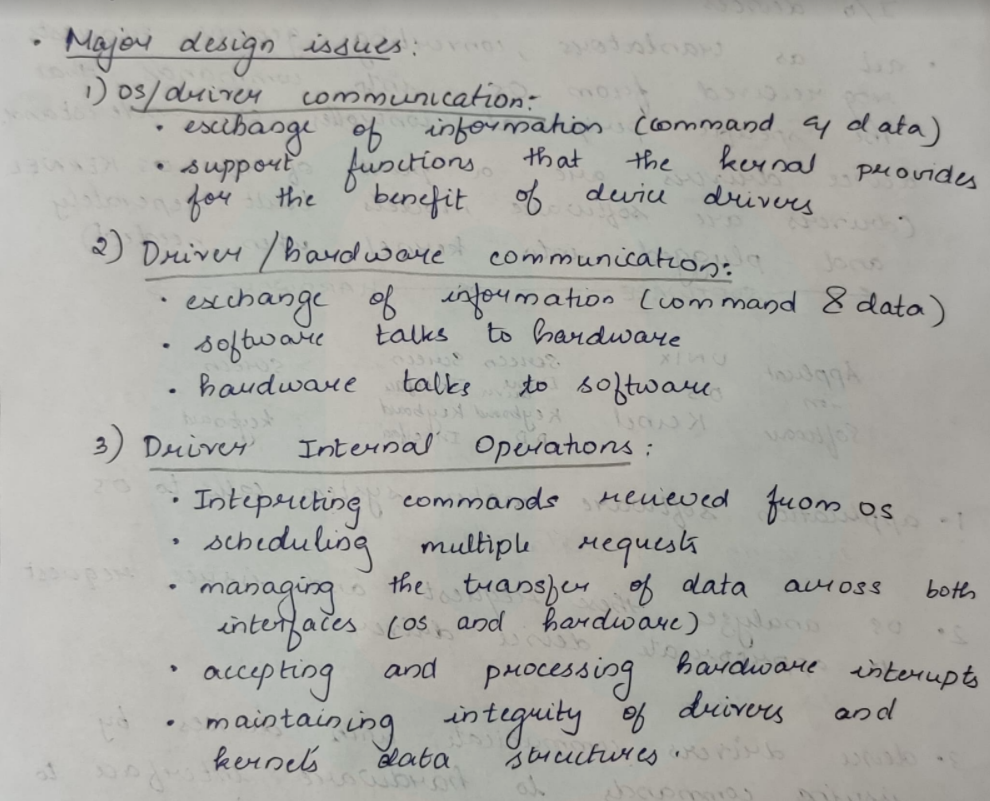 • Major design issues:
1) OS/driver communication:-
• exchange of information (command & data)
• support functions that the kernal provides
for the benefit of device drivers
2) Driver/hardware communication:
• exchange of information (command & data)
• software talks to hardware
• hardware talks to software
3) Driver Internal Operations:
• Intepreting commands recieved from OS
• scheduling multiple requests
• managing the transfer of data across both
interfaces (OS and hardware)
• accepting and processing hardware interupts
• maintaining integrity of drivers and
kernels data structures.